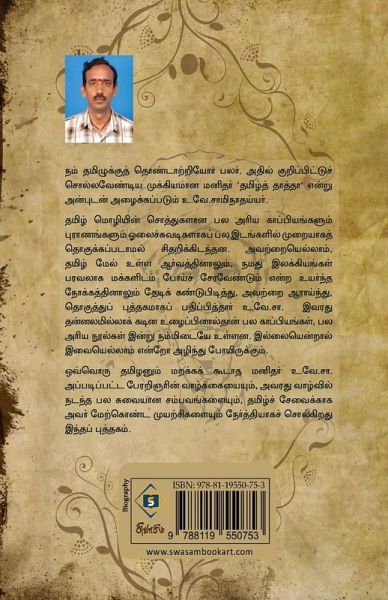 நம் தமிழுக்குத் தொண்டாற்றியோர் பலர். அதில் குறிப்பிட்டுச்
சொல்லவேண்டிய முக்கியமான மனிதர் 'தமிழ்த் தாத்தா' என்று
அன்புடன் அழைக்கப்படும் உ.வே.சாமிநாதய்யர்.
தமிழ் மொழியின் சொத்துகளான பல அரிய காப்பியங்களும்
புராணங்களும் ஓலைச்சுவடிகளாகப் பல இடங்களில் முறையாகத்
தொகுக்கப்படாமல் சிதறிக்கிடந்தன. அவற்றையெல்லாம்,
தமிழ் மேல் உள்ள ஆர்வத்தினாலும், நமது இலக்கியங்கள்
பரவலாக மக்களிடம் போய்ச் சேரவேண்டும் என்ற உயர்ந்த
நோக்கத்தினாலும் தேடிக் கண்டுபிடித்து, அவற்றை ஆராய்ந்து,
தொகுத்துப் புத்தகமாகப் பதிப்பித்தார் உ.வே.சா. இவரது
தன்னலமில்லாக் கடின உழைப்பினால்தான் பல காப்பியங்கள், பல
அரிய நூல்கள் இன்று நம்மிடையே உள்ளன. இல்லையென்றால்
இவையெல்லாம் என்றோ அழிந்து போயிருக்கும்.
ஒவ்வொரு தமிழனும் மறக்கக் கூடாத மனிதர் உ.வே.சா.
அப்படிப்பட்ட பேரறிஞரின் வாழ்க்கையையும், அவரது வாழ்வில்
நடந்த பல சுவையான சம்பவங்களையும், தமிழ்ச் சேவைக்காக
அவர் மேற்கொண்ட முயற்சிகளையும் நேர்த்தியாகச் சொல்கிறது
இந்தப் புத்தகம்.
Biography
S
சுவாசம்
ISBN: 978-81-19550-75-3
9 788119 550753
www.swasambookart.com